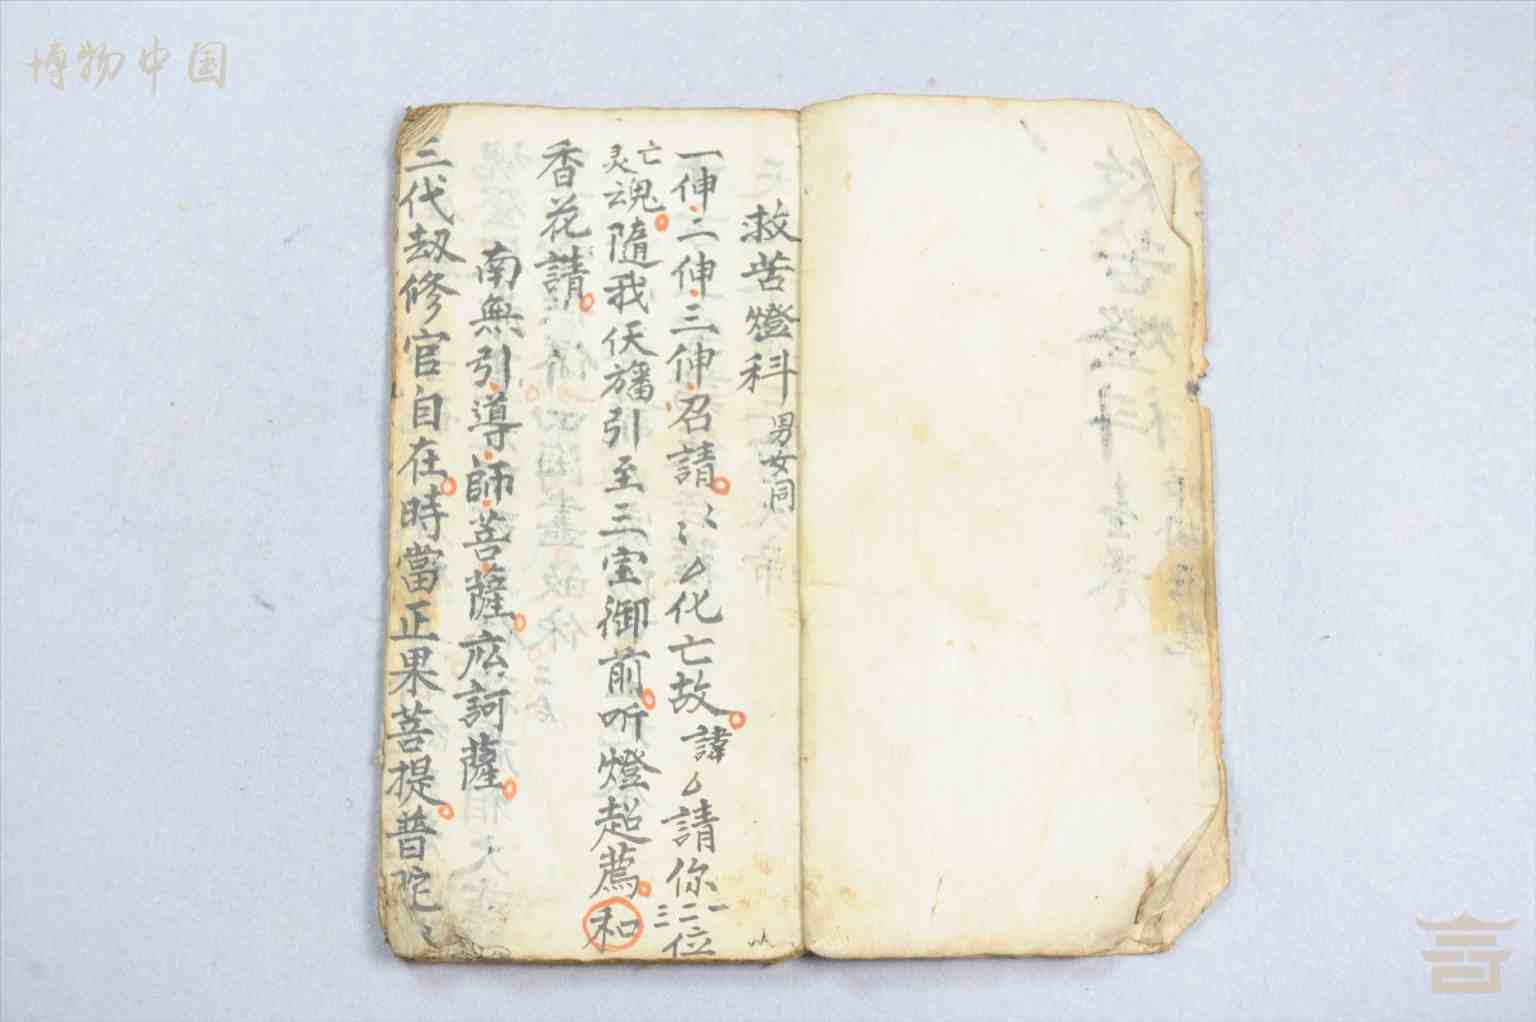 博物中国
救苦燈科 男女同
一伸二伸三伸召請〻〻厶化亡故諱厶請你一二三位
亡灵魂隨我仸旛引至三宝御前听燈超薦和
香花請
南無引導師菩薩庅訶薩
三代劫修官自在時當正果菩提普陀〻